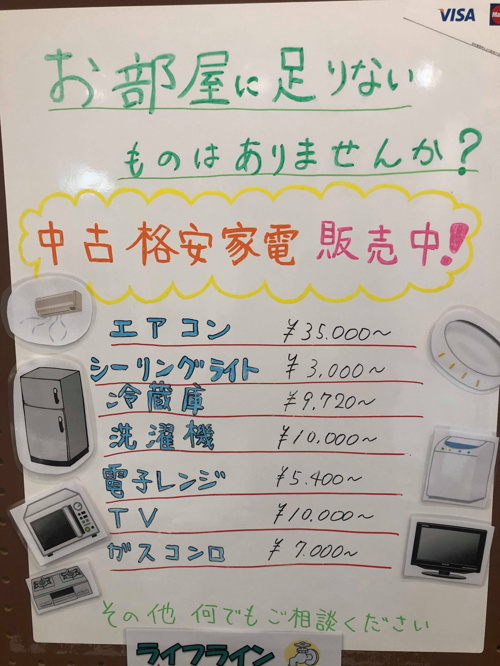 VISA
お部屋に足りない
ものはありませんか?
中古格安家電 販売中!
エアコン ¥35.000～
シーリングライト ¥3,000～
冷蔵庫 ¥9.720～
洗濯機 ¥10.000～
電子レンジ ¥5.400～
TV ¥10,000～
ガスコンロ ¥7.000～
その他 何でもご相談ください
ライフライン